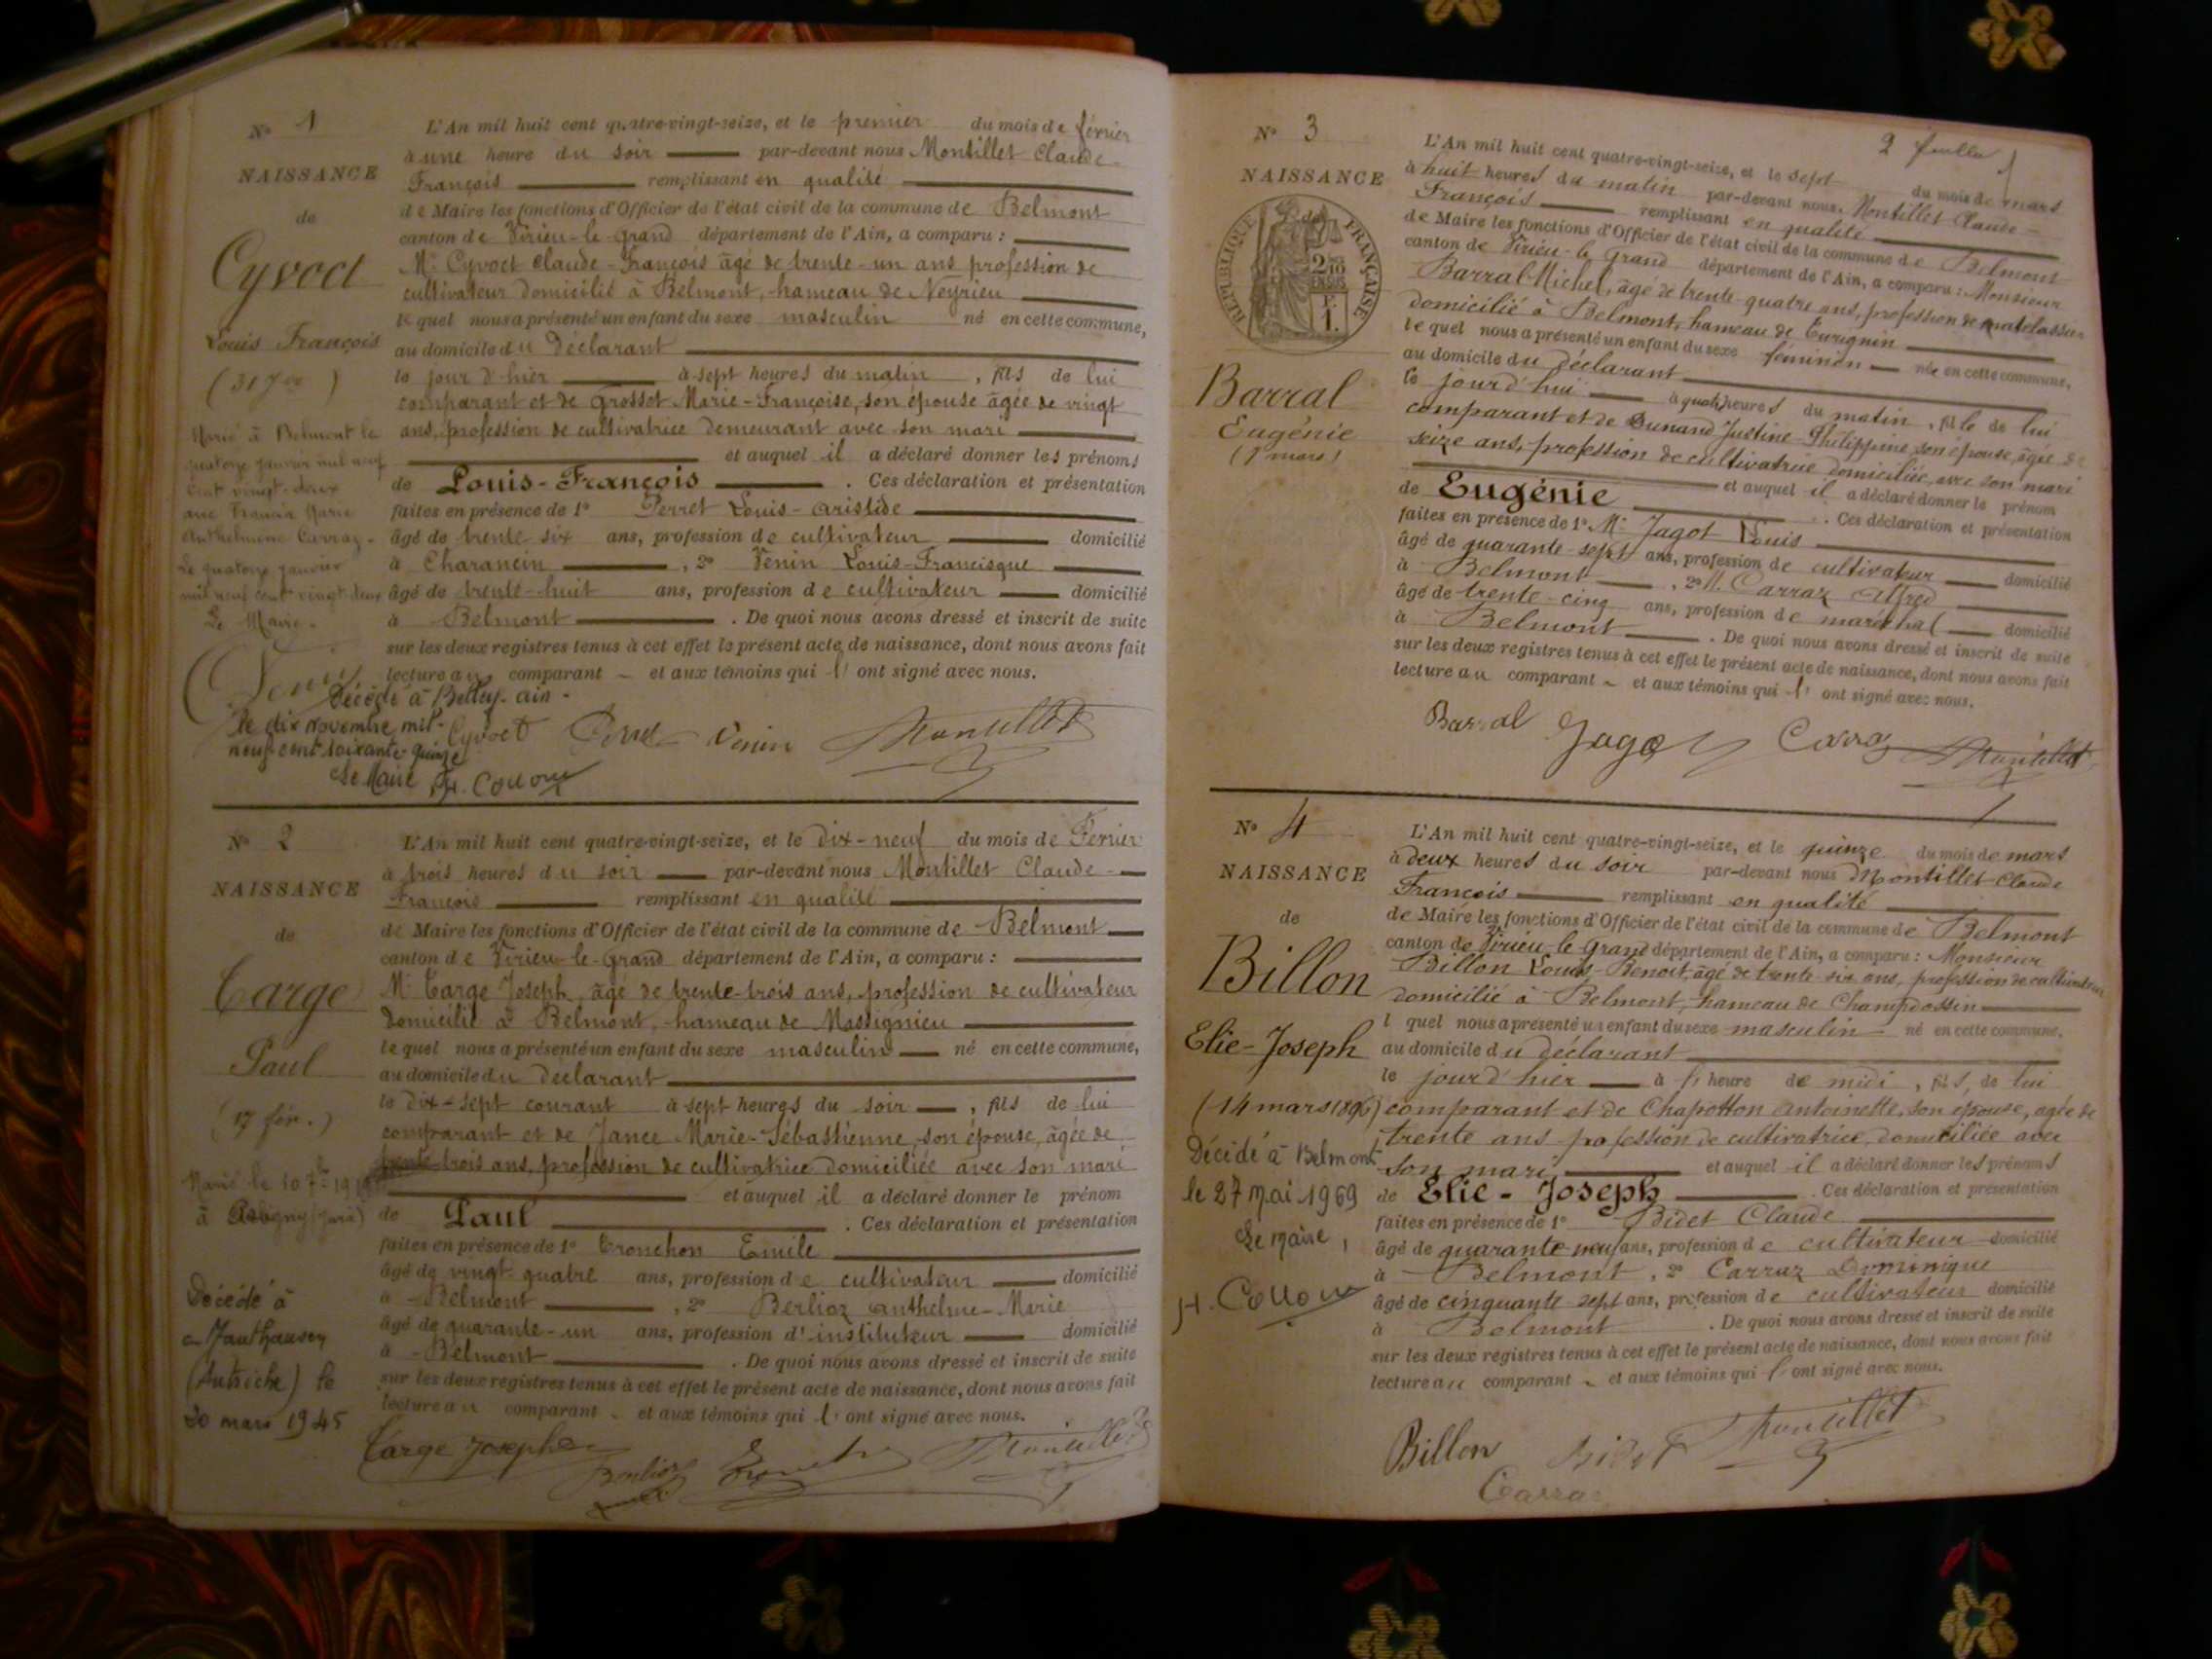 N° 1
NAISSANCE
de
Cyvoct
Louis François
(31 
Marié à Belmont le
quatorze janvier mil neuf
cent vingt-deux
avec Francia Marie
Anthelmine Carraz.
Le quatorze janvier
mil neuf cent vingt deux
Le Maire.
L'An mil huit cent quatre-vingt-seize, et le premier du mois de février
à une heure du soir par-devant nous Montillet Claude-
François remplissant en qualité
de Maire les fonctions d'Officier de l'état civil de la commune de Belmont
canton de Virieu-le-Grand département de l'Ain, a comparu :
Mr Cyvoct Claude-François âgé de trente-un ans profession de
cultivateur domicilié à Belmont, hameau de Neyrieu
lequel nous a présenté un enfant du sexe masculin né en cette commune,
au domicile du déclarant
le jour d'hier à sept heures du matin, fils de lui
comparant et de Grosset Marie-Françoise, son épouse âgée de vingt
ans, profession de cultivatrice demeurant avec son mari
et auquel il a déclaré donner les prénoms
de Louis-François. Ces déclaration et présentation
faites en présence de 1° Perret Louis-Aristide
âgé de trente six ans, profession de cultivateur domicilié
à Charancin, 2° Venin Louis-Francisque
âgé de trente-huit ans, profession de cultivateur domicilié
à Belmont. De quoi nous avons dressé et inscrit de suite
sur les deux registres tenus à cet effet le présent acte de naissance, dont nous avons fait
lecture au comparant et aux témoins qui l'ont signé avec nous.
Décédé à Belley-ain-
le dix novembre mil-
neuf cent soixante-quinze
Le Maire
Cyvoct Perret Venin Montillet
N° 2
NAISSANCE
de
Targe
Paul
(17 fév.)
Marié le 10 
à (Jura)
Décédé à
Mauthausen
(Autriche) le
20 mars 1945
L'An mil huit cent quatre-vingt-seize, et le dix-neuf du mois de Février
à trois heures du soir par-devant nous Montillet Claude-
François remplissant en qualité
de Maire les fonctions d'Officier de l'état civil de la commune de Belmont
canton de Virieu-le-Grand département de l'Ain, a comparu :
Mr Targe Joseph, âgé de trente-trois ans, profession de cultivateur
domicilié à Belmont, hameau de Massignieu
lequel nous a présenté un enfant du sexe masculin né en cette commune,
au domicile du déclarant
le dix-sept courant à sept heures du soir, fils de lui
comparant et de Jance Marie-Sébastienne, son épouse, âgée de
trente-trois ans, profession de cultivatrice domiciliée avec son mari
et auquel il a déclaré donner le prénom
de Paul. Ces déclaration et présentation
faites en présence de 1° Tronchon Emile
âgé de vingt-quatre ans, profession de cultivateur domicilié
à Belmont, 2° Berlioz Anthelme-Marie
âgé de quarante-un ans, profession d'instituteur domicilié
à Belmont. De quoi nous avons dressé et inscrit de suite
sur les deux registres tenus à cet effet le présent acte de naissance, dont nous avons fait
lecture au comparant et aux témoins qui l'ont signé avec nous.
Targe Joseph Berlioz Montillet
2
N° 3
NAISSANCE
de
RÉPUBLIQUE FRANÇAISE
Barral
Eugénie
(7 mars)
L'An mil huit cent quatre-vingt-seize, et le sept du mois de mars
à huit heures du matin par-devant nous, Montillet Claude-
François remplissant en qualité
de Maire les fonctions d'Officier de l'état civil de la commune de Belmont
canton de Virieu-le Grand département de l'Ain, a comparu : Monsieur
Barral Michel, âgé de trente quatre ans, profession de matelassier
domicilié à Belmont, hameau de
lequel nous a présenté un enfant du sexe féminin née en cette commune,
au domicile du déclarant
le jourd'hui à quatre heures du matin, fille de lui
comparant et de Dunand Justine-Philippine, son épouse, âgée de
seize ans, profession de cultivatrice domiciliée avec son mari
et auquel il a déclaré donner le prénom
de Eugénie. Ces déclaration et présentation
faites en présence de 1° Mr Jagot Louis
âgé de quarante-sept ans, profession de cultivateur domicilié
à Belmont, 2° M. Carraz Alfred
âgé de trente-cinq ans, profession de maréchal domicilié
à Belmont. De quoi nous avons dressé et inscrit de suite
sur les deux registres tenus à cet effet le présent acte de naissance, dont nous avons fait
lecture au comparant et aux témoins qui l'ont signé avec nous.
Barral Jagot Carraz Montillet
N° 4
NAISSANCE
de
Billon
Elie-Joseph
(14 mars 1896)
Décédé à Belmont
le 27 mai 1969
Le maire,
L'An mil huit cent quatre-vingt-seize, et le quinze du mois de mars
à deux heures du soir par-devant nous Montillet Claude
François remplissant en qualité
de Maire les fonctions d'Officier de l'état civil de la commune de Belmont
canton de Virieu-le Grand département de l'Ain, a comparu : Monsieur
Billon Louis-Benoit, âgé de trente six ans, profession de cultivateur
domicilié à Belmont, hameau de Champdossin
l quel nous a présenté un enfant du sexe masculin né en cette commune,
au domicile du déclarant
le jour d'hier à heure de midi, fils, de lui
comparant et de Chapotton Antoinette, son épouse, agée de
trente ans profession de cultivatrice, domiciliée avec
son mari et auquel il a déclaré donner les prénoms
de Elie-Joseph. Ces déclaration et présentation
faites en présence de 1° Bidet Claude
âgé de quarante-neuf ans, profession de cultivateur domicilié
à Belmont, 2° Carraz Dominique
âgé de cinquante sept ans, profession de cultivateur domicilié
à Belmont. De quoi nous avons dressé et inscrit de suite
sur les deux registres tenus à cet effet le présent acte de naissance, dont nous avons fait
lecture au comparant et aux témoins qui l'ont signé avec nous.
Billon Bidet Montillet
Carraz